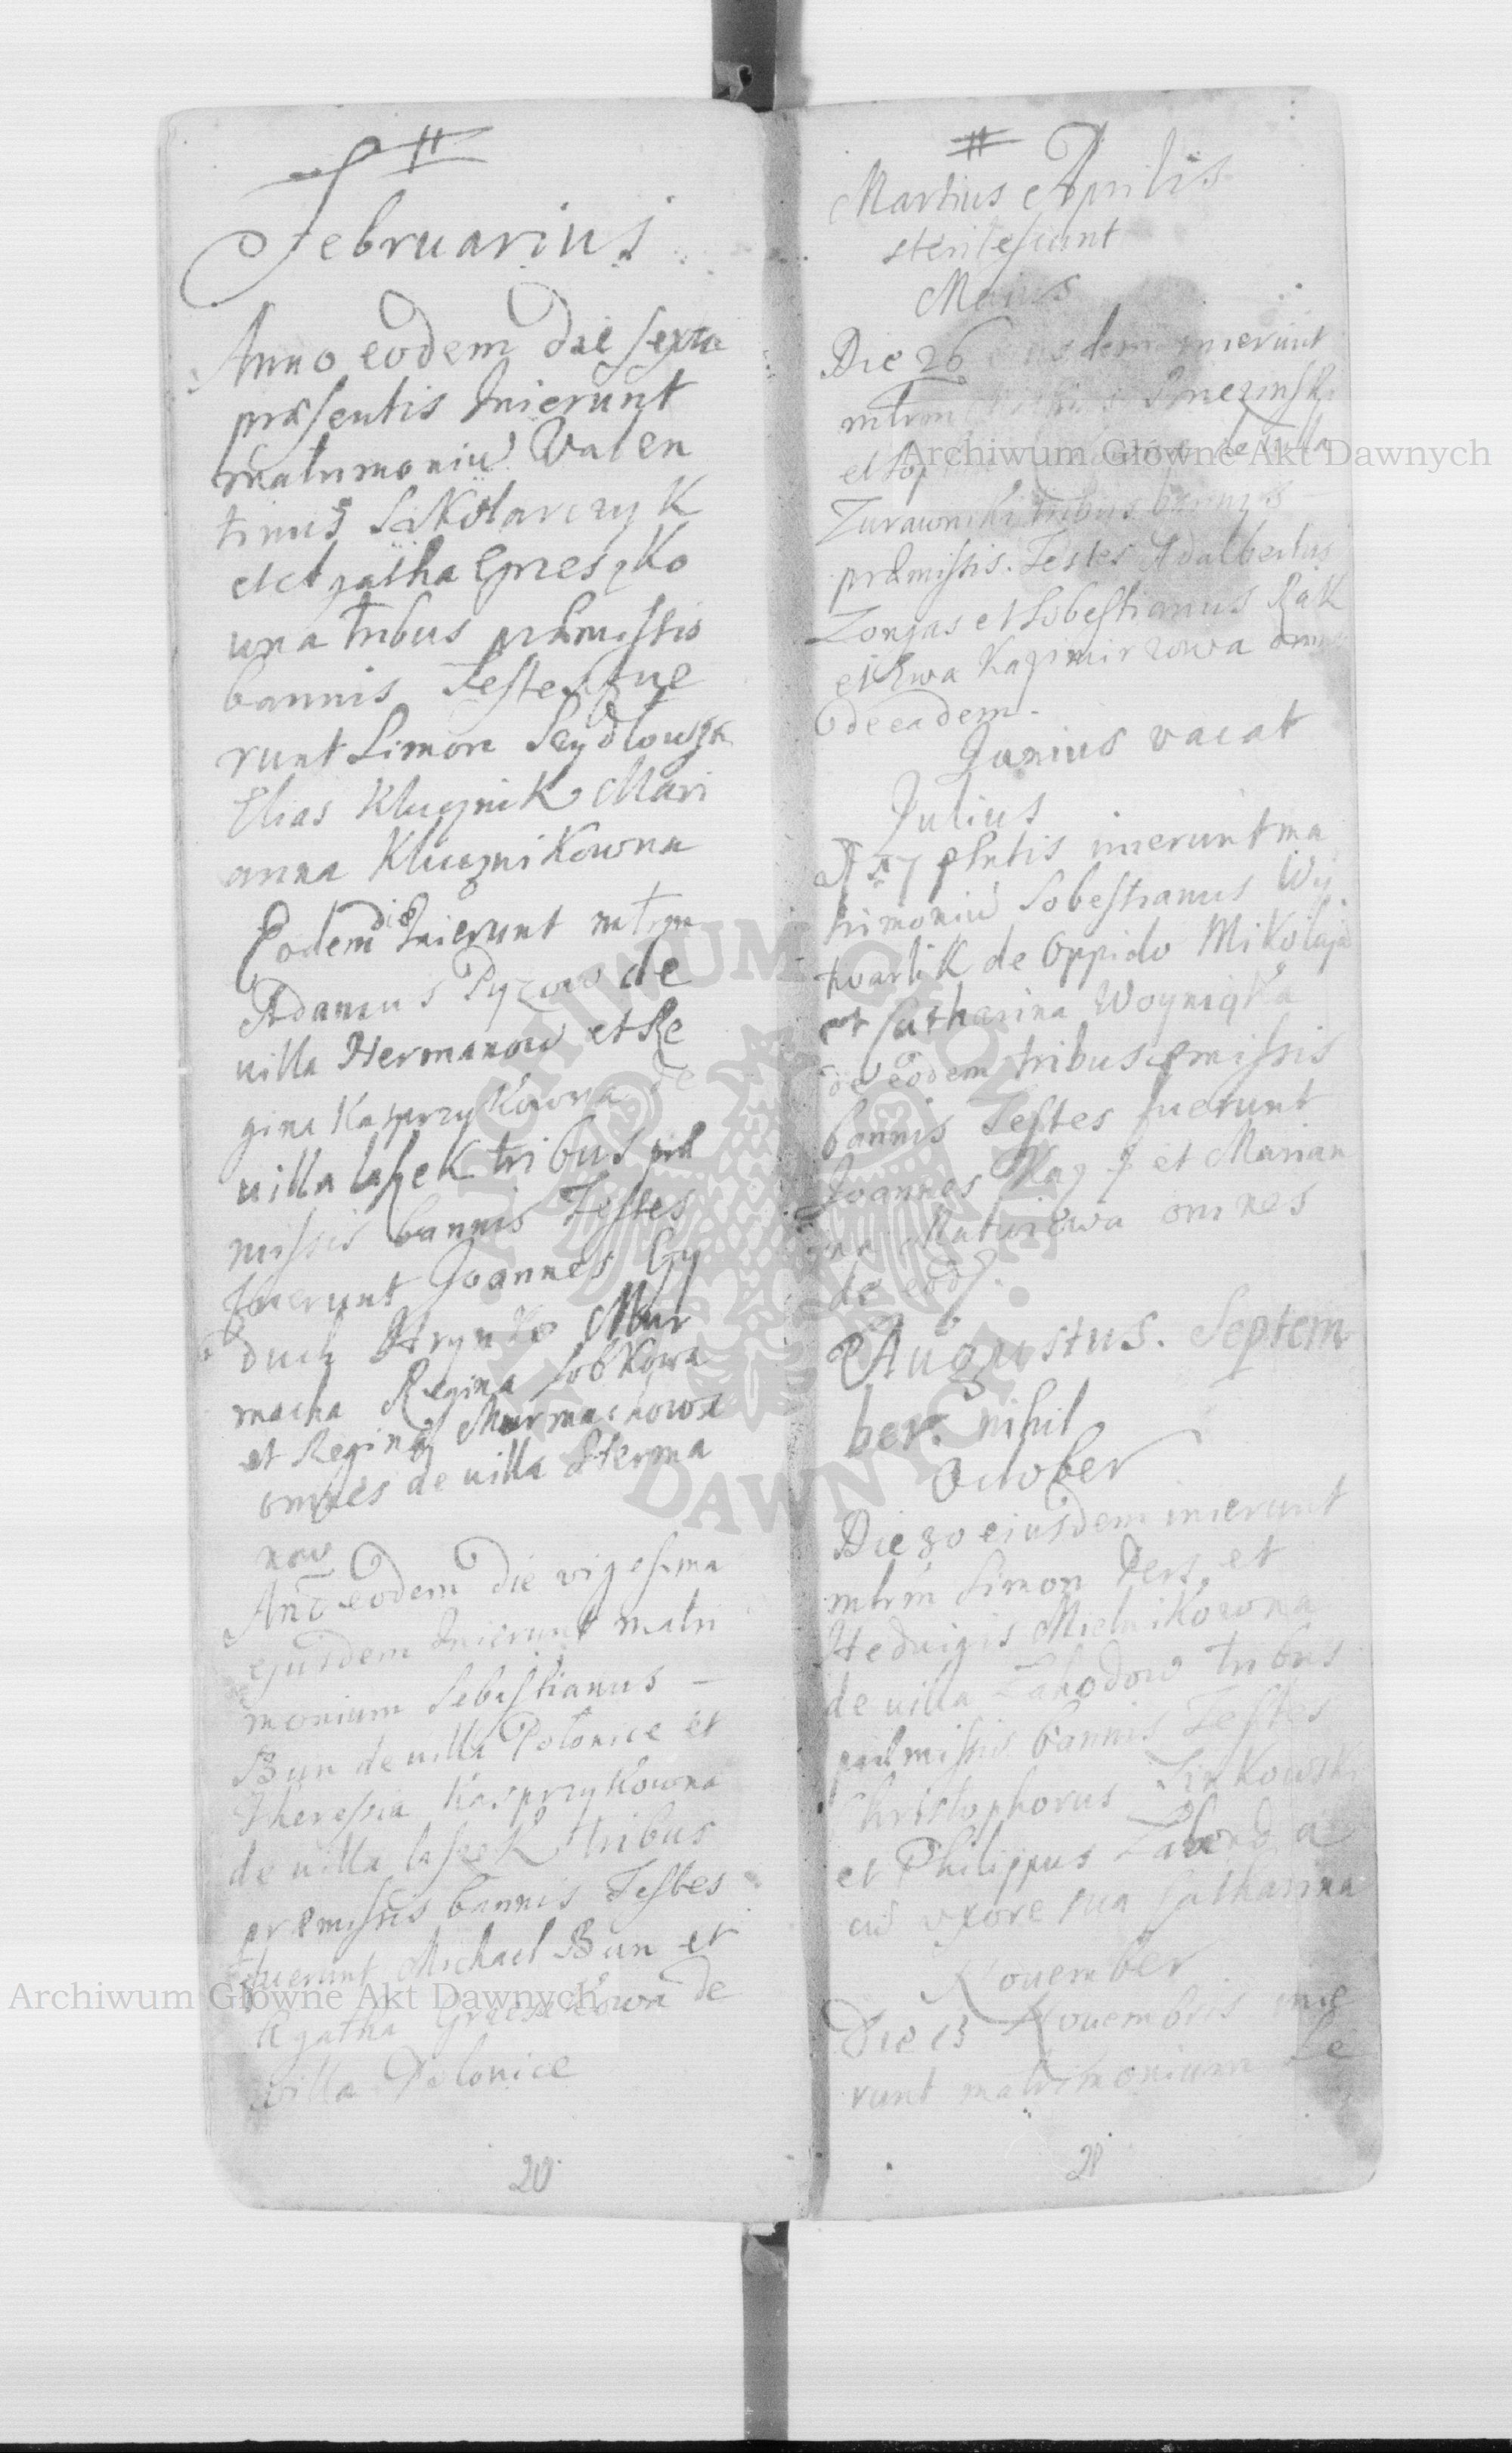 Februarius
Anno eodem die sexta
præsentis Inierunt
matrimoniu Valen
tinus Sikolarczyk
et Agatha Grzeszko
wna tribus præmissis
bannis Testes fue
runt Simon Szydlowsk
Elias Klucznik Mari
anna Klucznikowna
Eodem die Inierunt mtrm
Adamus Pyzow de
uilla Hermanow et Re
gina Kasprzykowna de
uilla laszek tribus præ
missis bannis Testes
fuerunt Joannes By
duch Hrynko Mur
macha Regina Sobkowa
et Regina Murmachowa
omnes de uilla Herma
now
Ano eodem die vigesima
ejusdem Inierunt matri
monium Sebastianus
Bun de uilla Polonice et
Theresia Kasprzykowna
de uilla laszek tribus
præmissis bannis Testes
fuerunt Michael Bun et
Agatha Grzeszkowa de
villa Polonice
20
Martius Aprilis
sterilescunt
Maius
Die 26 eiusdem inierunt
mtrm
et de uilla
Zurawniki tribus bannis
præmissis. Testes Adalbertus
Zongas et Sobestianus Rak
et Ewa Kazimirzowa omnes
de eadem.
Junius vacat
Julius
17 pntis inierunt ma
trimoniu Sobestianus Wy
twarlik de Oppido Mikolajo
et Catharina Woyniczka
de eodem tribus præmissis
bannis Testes fuerunt
Joannes et Marian
na Matuiewa omnes
de eod.
Augustus. Septem
ber. nihil
October
Die 30 eiusdem inierunt
mtrm Simon Ders et
Heduigis Mielnikowna
de uilla Zahodow tribus
præmissis bannis Testes
Christophorus Zinkowski
et Philippus Zaborda
cu uxore sua Catharina
Nouember
Die 13 Nouembris inie
runt matrimonium Le
21
Archiwum Główne Akt Dawnych
Archiwum Główne Akt Dawnych